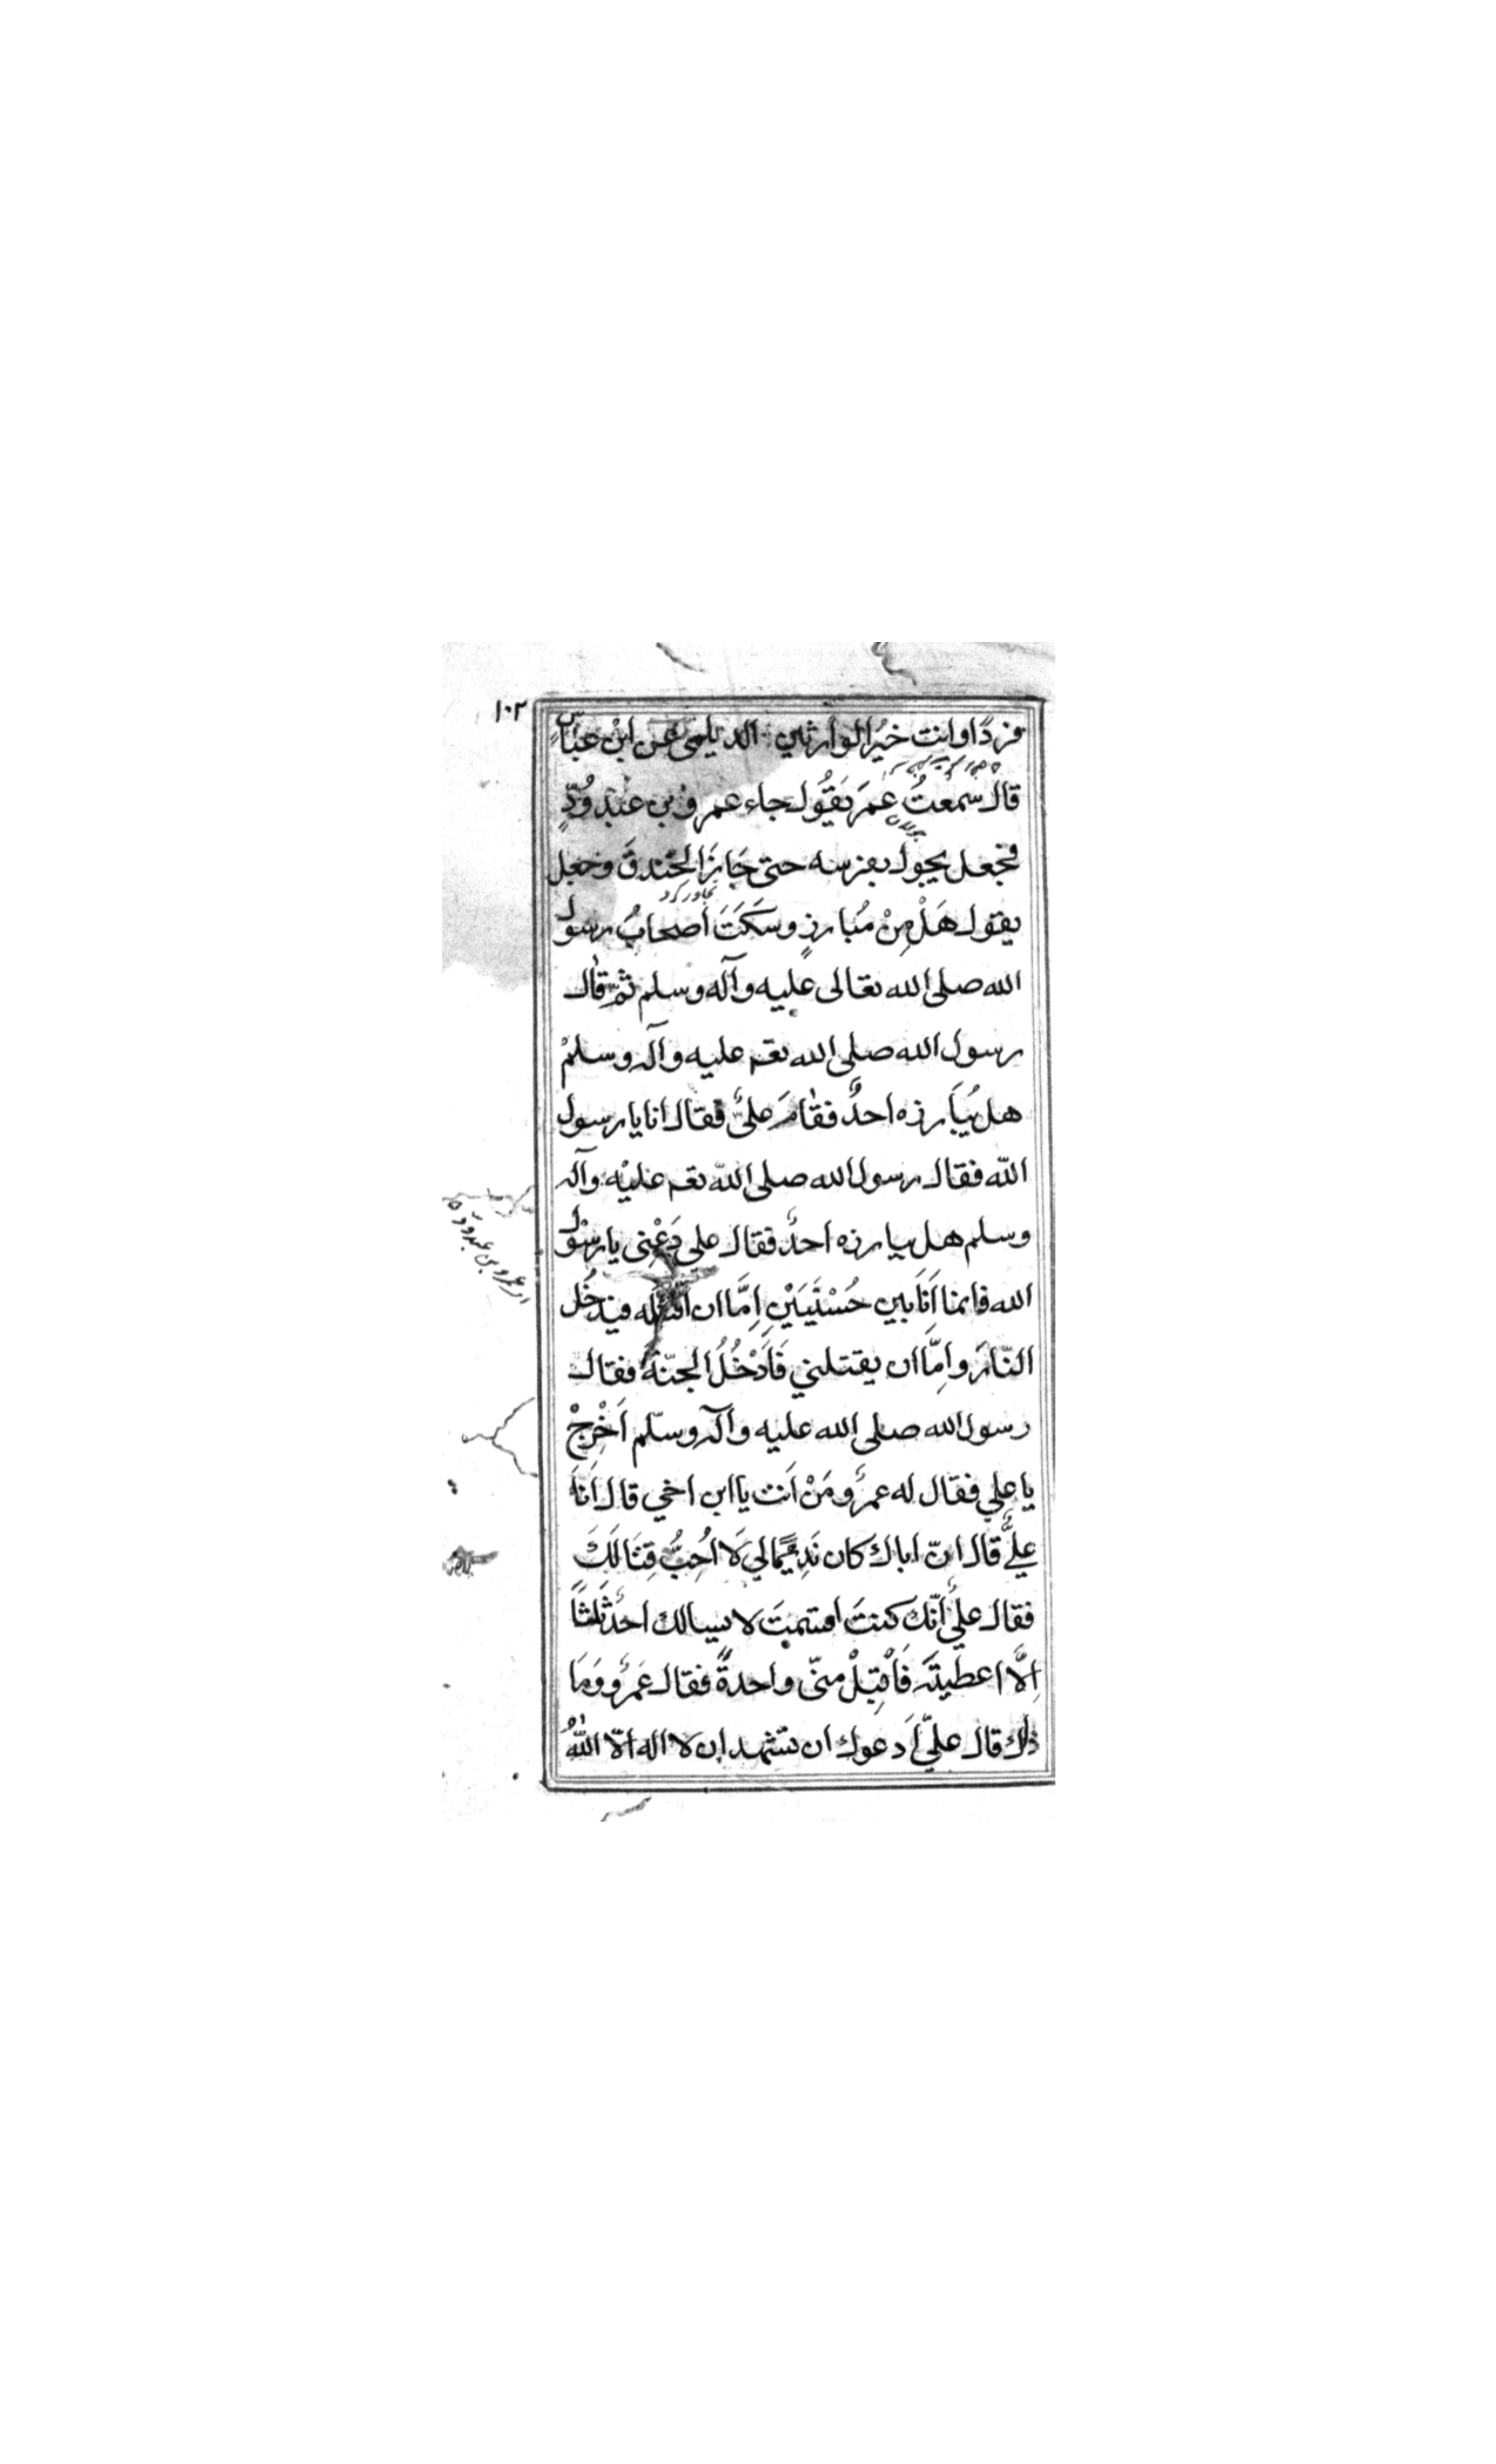 ١٠٢
فردًا وانت خيرُ الوارثين الديلمى عن ابْن عباسٍ
قال سَمعتُ عمَرَ يَقُول جاء عمروُ بن عَبْدِ وُدٍّ
جولان
فجعل يجول بفرسه حتى جَازَ الخندقَ وجعل
تجاوز كرد
يقول هَلْ مِنْ مُبارزٍ وسَكَتَ اَصحابُ رسول
الله صلى الله تعالى عليه وآله وسلم ثمّ قال
رسول الله صلى الله تعم عليه وآله وسلمْ
هل يُبَارزه احدٌ فقامَ علىٌّ فقال انا يا رسول
الله فقال رسول الله صلى الله تعم عليْه وآله
وسلم هل يبارزه احدٌ فقال علي دَعْنى يا رسُوْل
الله فانما اَنَا بَين حُسْنَيَيْنِ اِمَّا ان اقتُله فيدخُل
النّارَ واِمَّا ان يقتلني فَاَدْخُلُ الجنّةَ فقال
رسول الله صلى الله عليه وآله وسلّم اَخْرِجْ
يا علي فقال له عمرٌو مَنْ اَنت يا ابن اخي قال اَنَا
عليٌّ قال انّ اباك كان نَدِيْمًا لي لَا اُحِبُّ قِتَالَكَ
فقال عليٌّ اَنّك كنتَ اقسمتَ لا يسالك احدٌ ثَلثًا
اِلَّا اعطيتَه فَاقْبَلْ منّى واحدةً فقال عَمرٌو وَمَا
ذلك قال عليّ اَدعوك ان تشهد ان لا اله الّا اللهُ
عمرو بن عبدود